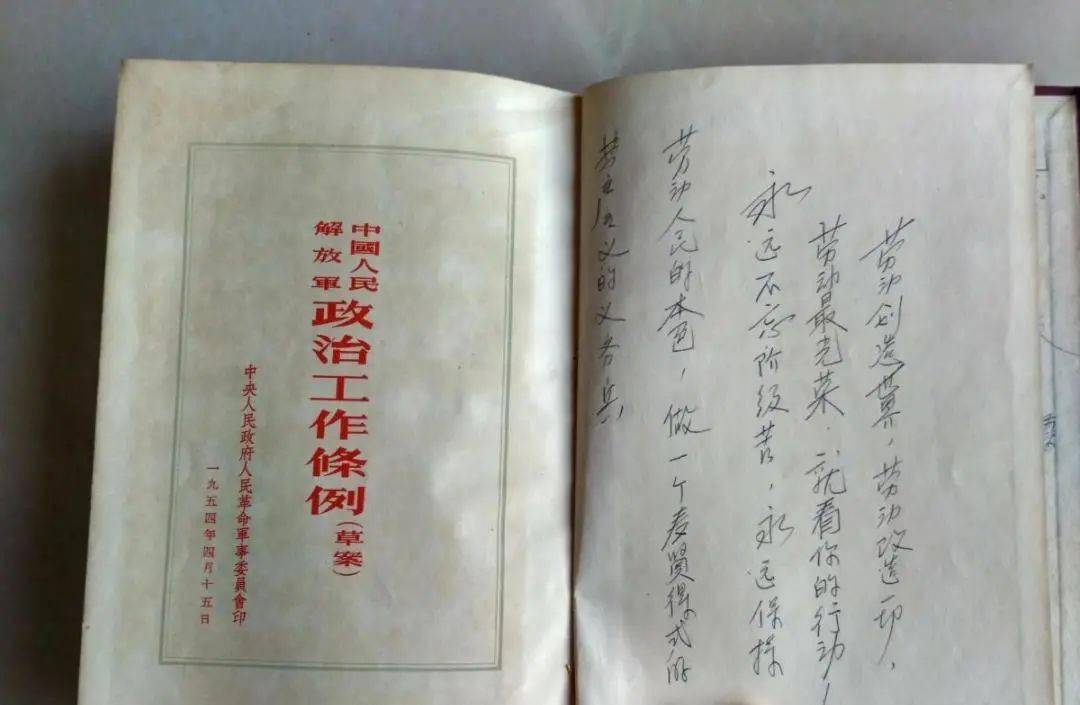 劳动创造世界，劳动改造一切，
劳动最光荣．就看你的行动！
永远不忘阶级苦，永远保持
劳动人民的本色，做一个麦贤得式的
义的义务兵，
中國人民
解放軍
政治工作條例(草案)
中央人民政府人民革命軍事委員會印
一九五四年四月十五日